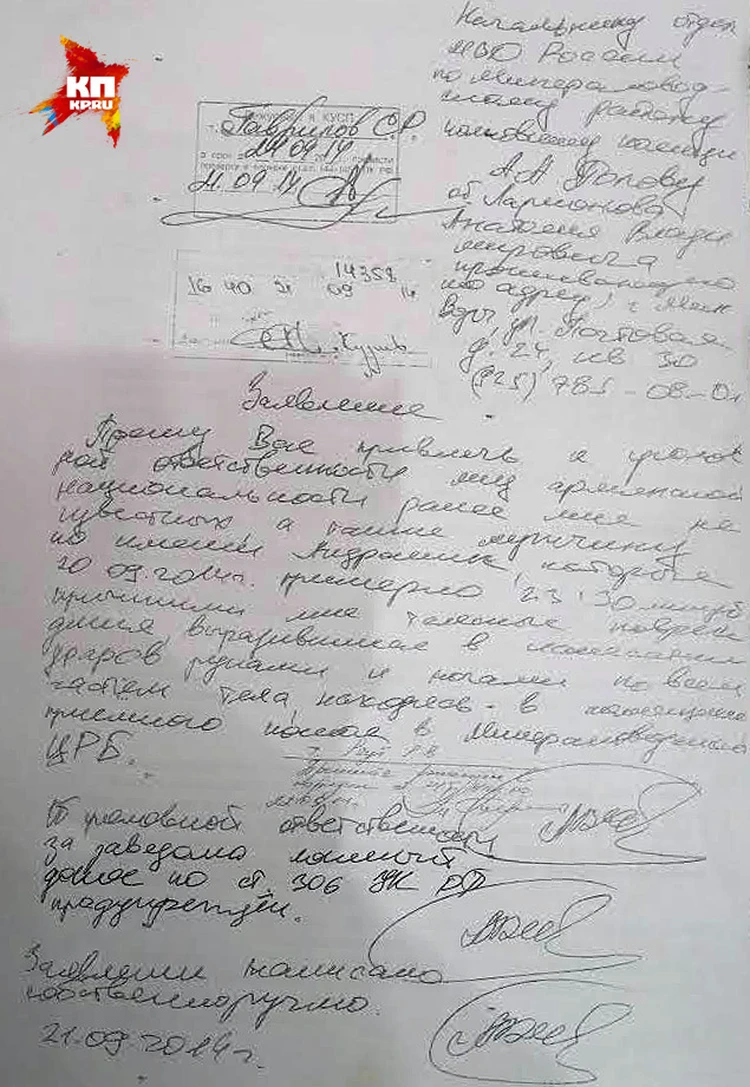 КП
KP.RU
Начальнику отдел
МВД России
по Минераловод-
скому району
полковнику полиции
А А Попову
от Ларионова
Анатолия Влади
мировича
проживающего
по адресу: г. Мин
Воды, ул. Почтовая
д. 24, кв 30
(925) 785-08-01
КУСП
Гаврилов С.Р.
21.09.14
21.09.14
14358
16 40 21 09 14
Заявление
Прошу Вас привлечь к уголов
ной ответственности лиц армянской
национальности ранее мне не
известных а также мужчину
по имени Андраник, которые
20.09.2014г. примерно 23:30 минут
причинили мне телесные повреж
дения, выразившиеся в нанесении
ударов руками и ногами по всем
частям тела, находясь в помещении
приемного покоя в Минераловодской
ЦРБ.
Об уголовной ответственности
за заведомо ложный
донос по ст. 306 УК РФ
предупрежден.
Заявление написано
собственноручно.
21.09.2014г.